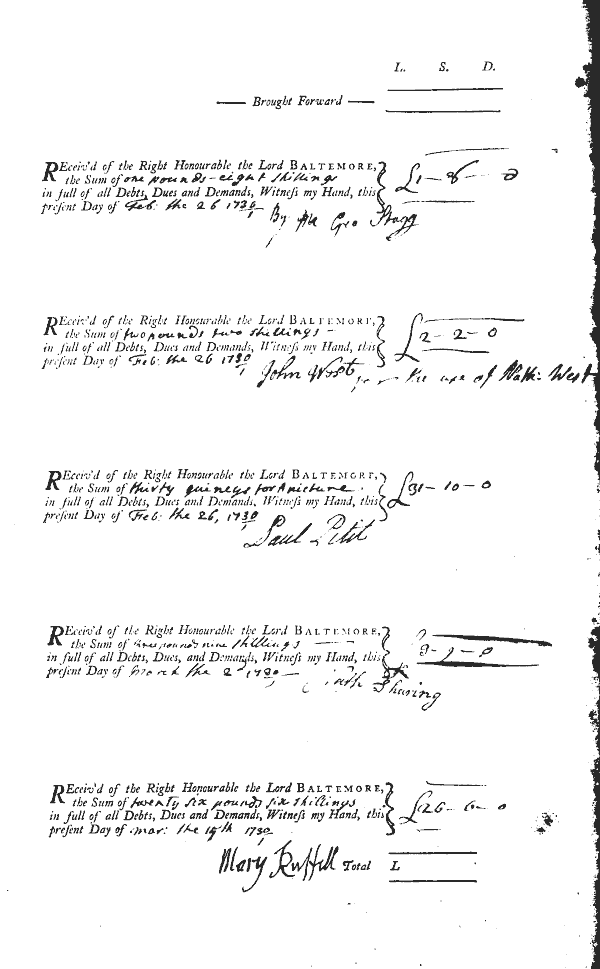 L. S. D.
Brought Forward
REceiv'd of the Right Honourable the Lord BALTEMORE,
the Sum of one pounds - eight shillings
in full of all Debts, Dues and Demands, Witneſs my Hand, this
preſent Day of Feb: the 26 1730
£1 - 8 - 0
By Geo Stagg
REceiv'd of the Right Honourable the Lord BALTEMORE,
the Sum of two pounds two shillings -
in full of all Debts, Dues and Demands, Witneſs my Hand, this
preſent Day of Feb: the 26 1730
£2 - 2 - 0
John West for the use of Nath: West
REceiv'd of the Right Honourable the Lord BALTEMORE,
the Sum of thirty guineys for A picture
in full of all Debts, Dues and Demands, Witneſs my Hand, this
preſent Day of Feb: the 26, 1730
£31 - 10 - 0
Paul Petit
REceiv'd of the Right Honourable the Lord BALTEMORE,
the Sum of pounds nine shillings
in full of all Debts, Dues, and Demands, Witneſs my Hand, this
preſent Day of March the 2d 1730
9 - 0
REceiv'd of the Right Honourable the Lord BALTEMORE,
the Sum of twenty six pounds six shillings
in full of all Debts, Dues and Demands, Witneſs my Hand, this
preſent Day of mar: the 19th 1730
£26 - 6 - 0
Mary Ruſſell Total L